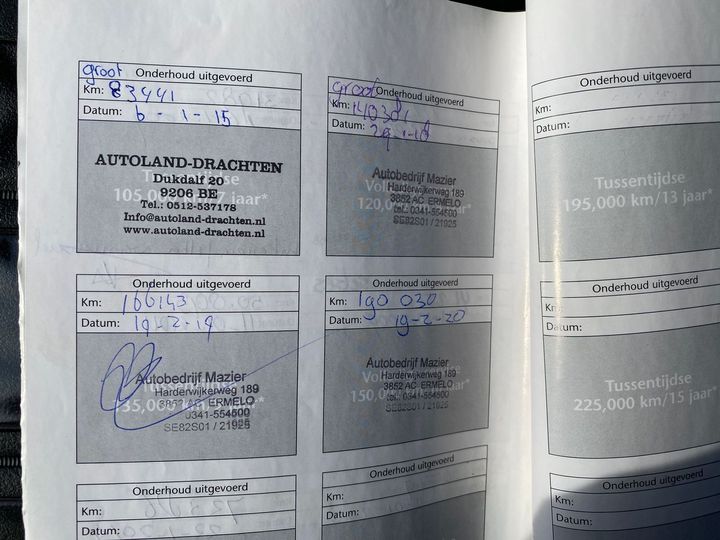 groot Onderhoud uitgevoerd
Km: 83441
Datum: 6-1-15
AUTOLAND-DRACHTEN
Dukdalf 20
9206 BE
Tel.: 0512-537178
Info@autoland-drachten.nl
www.autoland-drachten.nl
Tussentijdse
105,000 km/7 jaar*
groot Onderhoud uitgevoerd
Km: 140301
Datum: 29-1-18
Autobedrijf Mazier
Harderwijkerweg 189
3852 AC ERMELO
tel.: 0341-554500
SE82S01 / 21925
120,000
Km:
Onderhoud uitgevoerd
Datum:
Tussentijdse
195,000 km/13 jaar*
Onderhoud uitgevoerd
Km: 166143
Datum: 19-2-19
Autobedrijf Mazier
Harderwijkerweg 189
3852 AC ERMELO
0341-554500
SE82S01 / 21925
Onderhoud uitgevoerd
Km: 190 030
Datum: 19-2-20
Autobedrijf Mazier
Harderwijkerweg 189
3852 AC ERMELO
tel.: 0341-554500
SE82S01 / 21925
150,000
Onderhoud uitgevoerd
Datum:
Tussentijdse
225,000 km/15 jaar*
Onderhoud uitgevoerd
Km:
Datum:
Onderhoud uitgevoerd
Km:
Datum:
Onderhoud uitgevoerd
Km:
Datum: